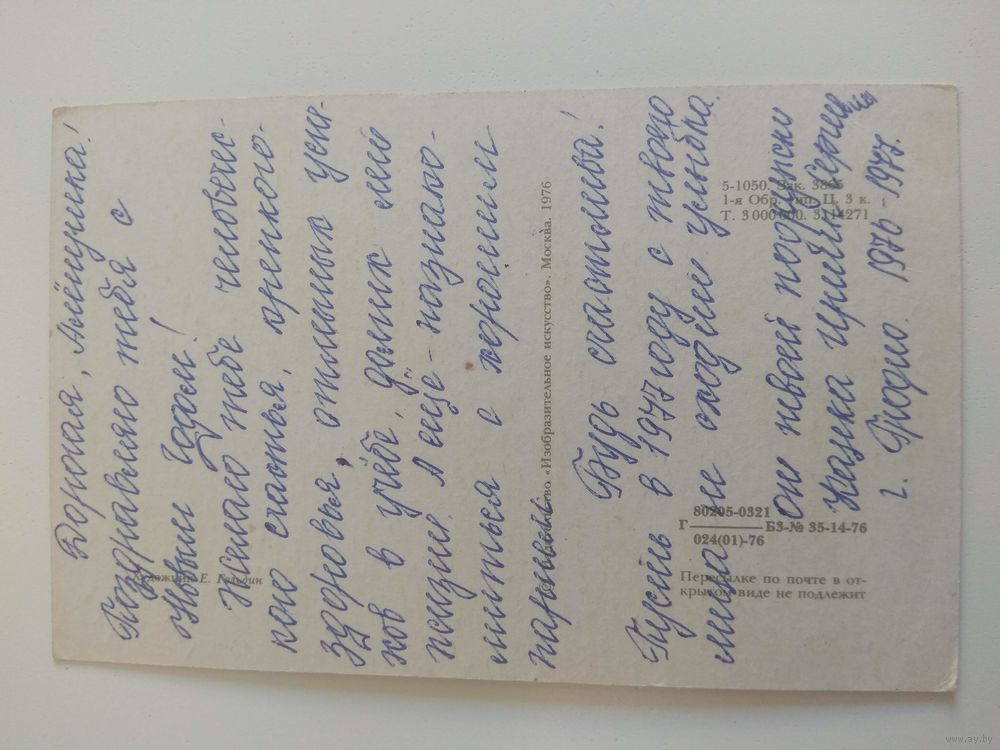 Дорогая, Аллушка!
Поздравляю тебя с
Новым годом!
Желаю тебе человечес-
кого счастья, крепкого
здоровья, отличных успе-
хов в учёбе, даль
жизни. А ещё - познако-
миться с хорошим
парнем.
Будь счастлива!
Пусть в 1977 году с твоего
лица не сходит улыбка.
твоей подружки
г. Гродно. 1976-1977.
Художник Е. Гольдин
Издательство «Изобразительное искусство». Москва. 1976
5-1050. Зак. 3865
1-я Обр. тип. Ц. 3 к.
Т. 3 000 000. 3114271
80205-0321
Г БЗ-№ 35-14-76
024(01)-76
Пересылке по почте в от-
крытом виде не подлежит
www.ay.by